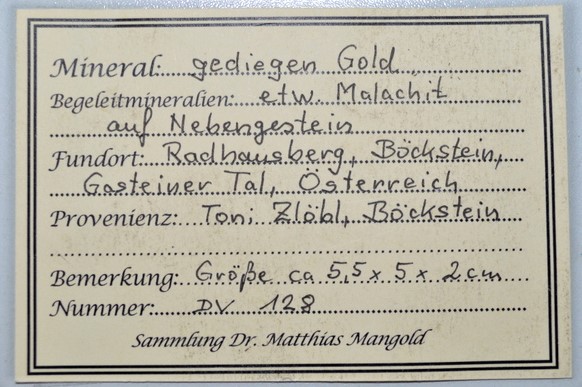 Mineral: gediegen Gold
Begeleitmineralien: etw. Malachit
auf Nebengestein
Fundort: Radhausberg, Böckstein,
Gasteiner Tal, Österreich
Provenienz: Toni Zlöbl, Böckstein
Bemerkung: Größe ca 5,5 x 5 x 2 cm
Nummer: DV 128
Sammlung Dr. Matthias Mangold